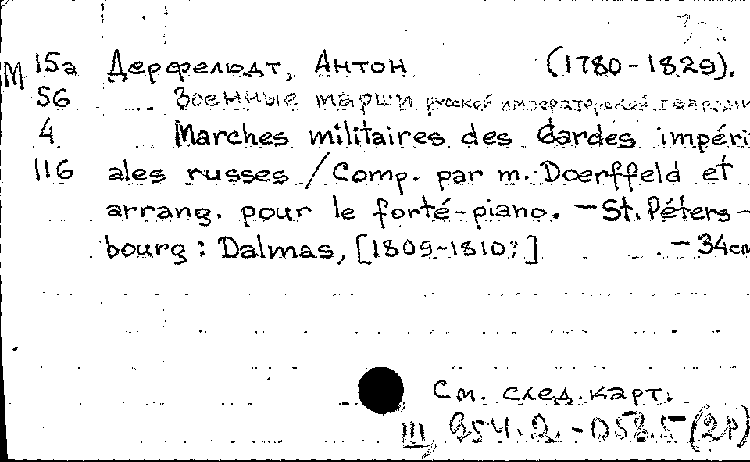 М 15а Дерфельдт, Антон (1780-1829).
56 Военные марши русской императорской гвардии
4 Marches militaires des Gardes impéri
116 ales russes / Comp. par m. Doerffeld et
arrang. pour le forté-piano. — St. Péters-
bourg : Dalmas, [1809-1810?] — 34cm
См. след. карт.
Ш 954.2.-D58.5 (2P)